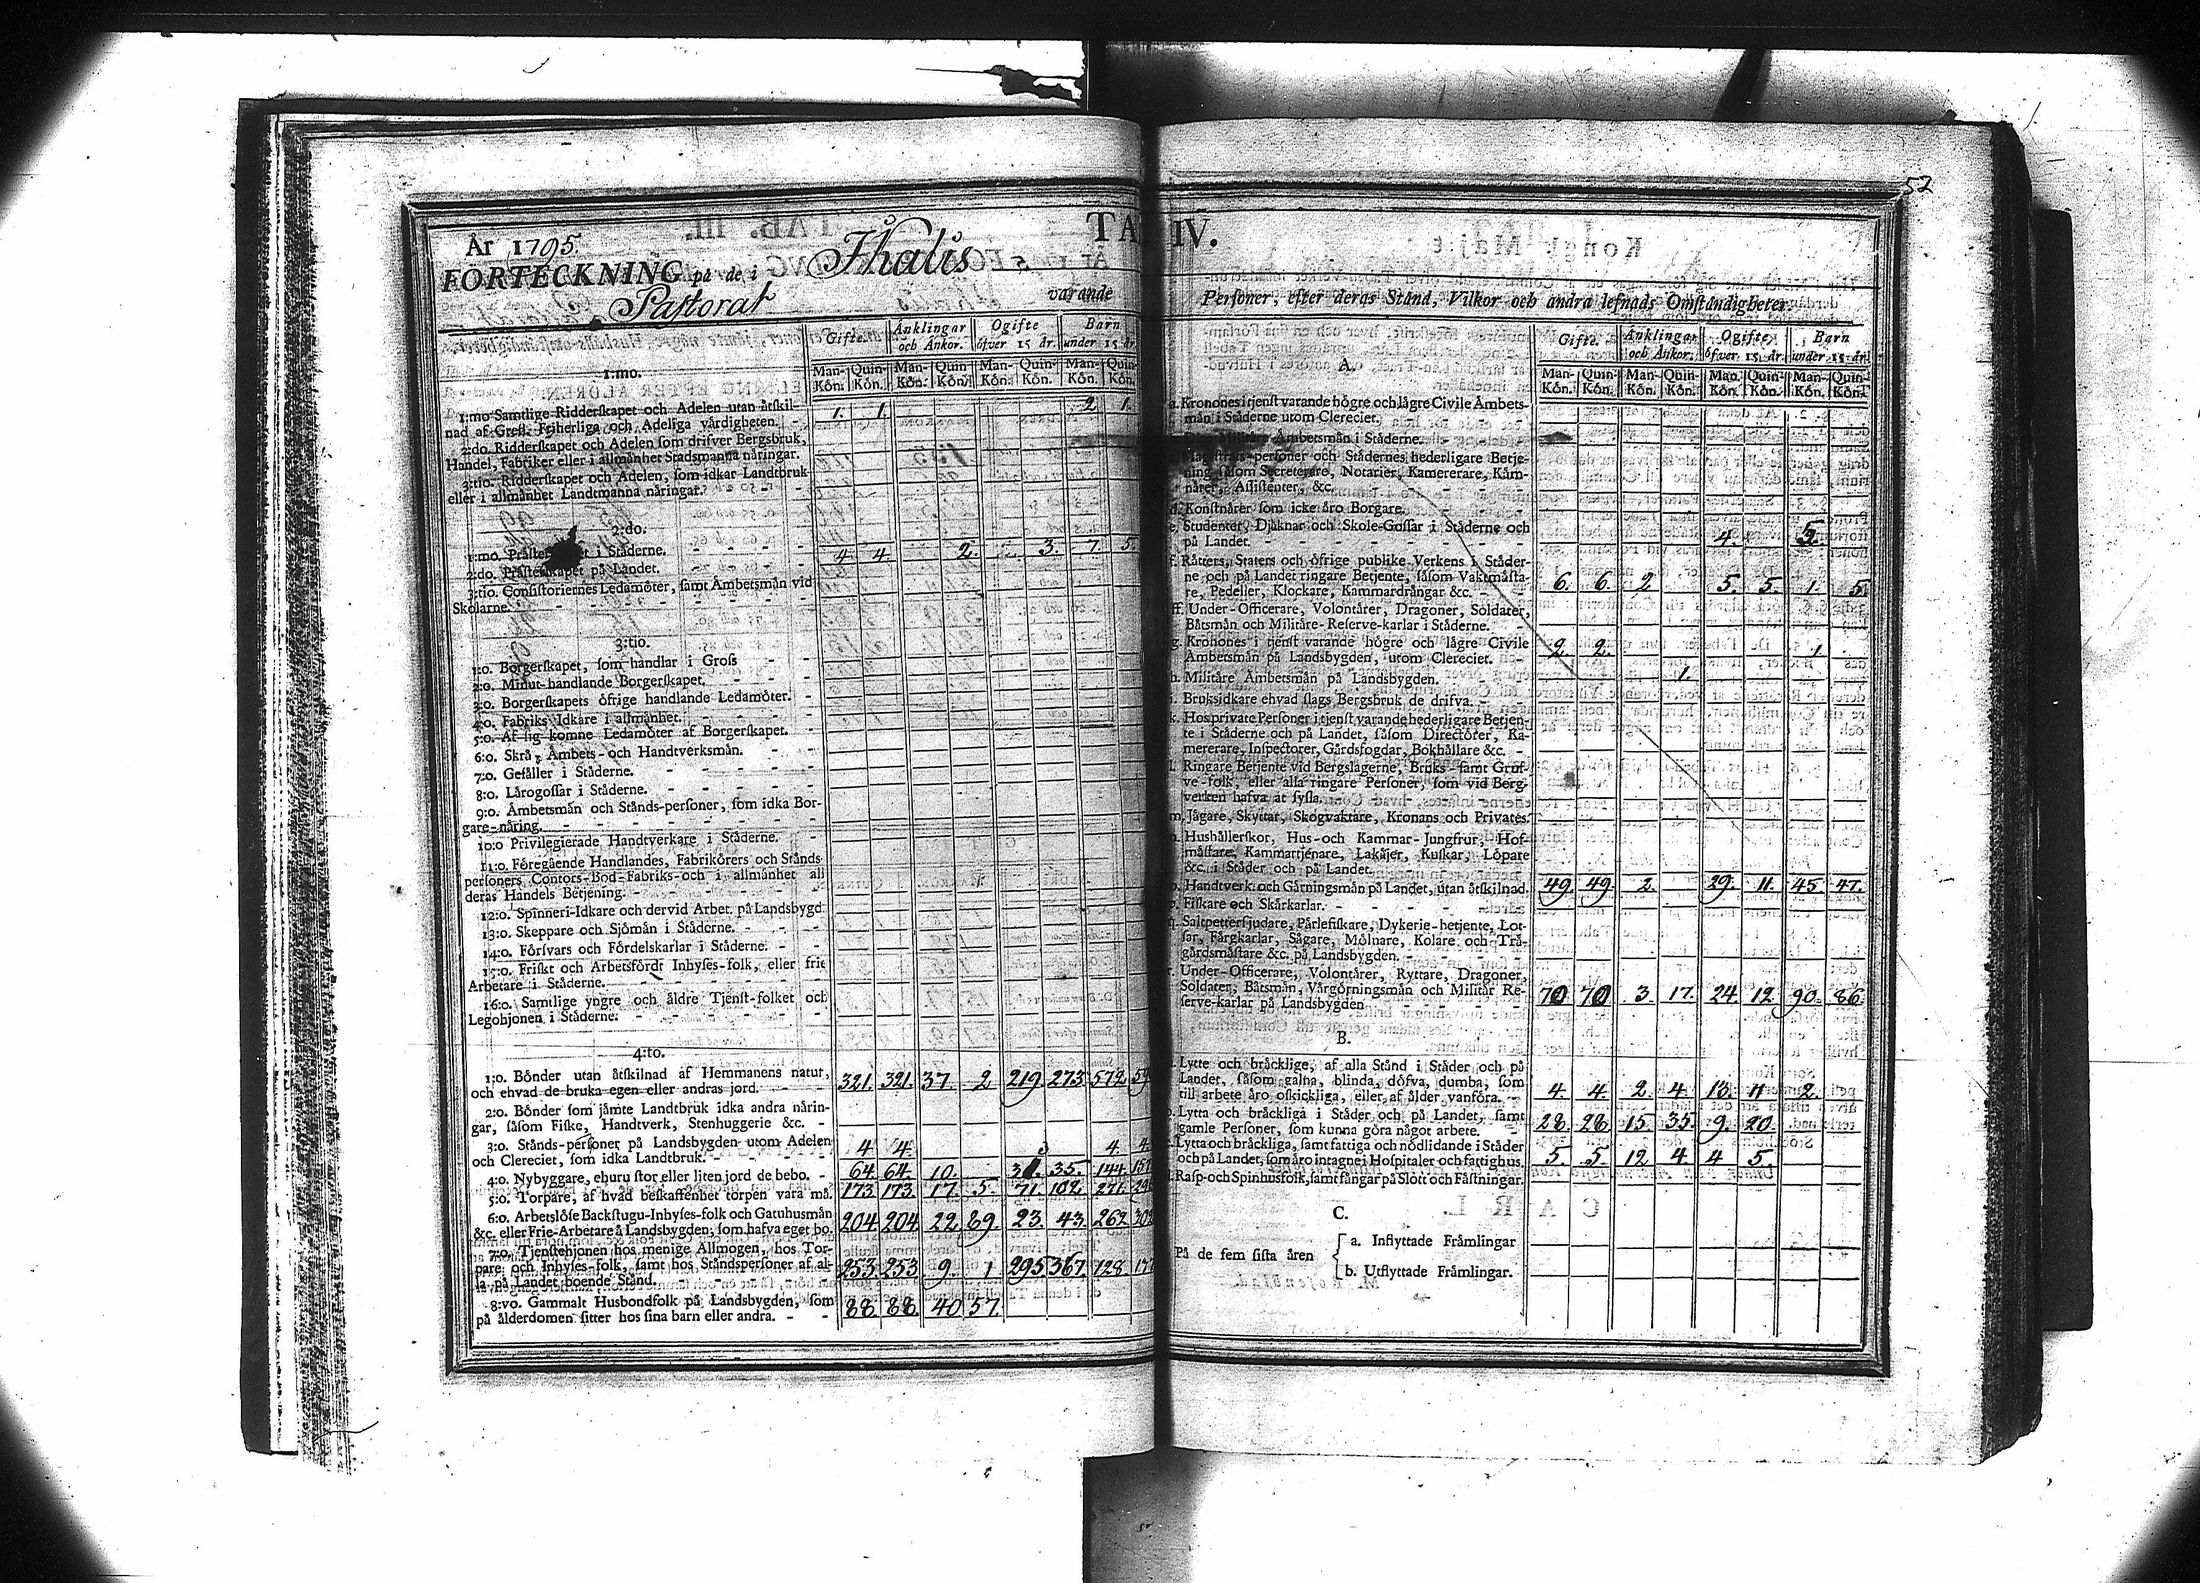 52
År 1795.
TA IV.
FÖRTECKNING på de i Jhalis
Pastorat varande
Personer, efter deras Stånd, Vilkor och andra lefnads Omständigheter.
Gifte. Änklingar och Änkor. Ogifte öfver 15 år. Barn under 15 år.
Man-Kön. Quin-Kön. Man-Kön. Quin-Kön. Man-Kön. Quin-Kön. Man-Kön. Quin-Kön.
1:mo.
1:mo Samtlige Ridderskapet och Adelen utan åtskil- 1. 1. 2 1.
nad af Grefl. Friherliga och Adeliga värdigheten.
2:do. Ridderskapet och Adelen som drifver Bergsbruk,
Handel, Fabriker eller i allmänhet Stadsmanna näringar.
3:tio. Ridderskapet och Adelen, som idkar Landtbruk
eller i allmänhet Landtmanna näringar.
2:do.
1:mo. i Städerne. 4 4. 2. 3. 7. 5.
2:do. Prästerskapet på Landet.
3:tio. Consistoriernes Ledamöter, samt Ämbetsmän vid
Skolarne.
3:tio.
1:o. Borgerskapet, som handlar i Gross
2:o. Minut-handlande Borgerskapet.
3:o. Borgerskapets öfrige handlande Ledamöter.
4:o. Fabriks Idkare i allmänhet.
5:o. Af sig komne Ledamöter af Borgerskapet.
6:o. Skrå, Ämbets- och Handtverksmän.
7:o. Gesäller i Städerne.
8:o. Lärogossar i Städerne.
9:o. Ämbetsmän och Stånds-personer, som idka Bor-
gare-näring.
10:o Privilegierade Handtverkare i Städerne.
11:o. Föregående Handlandes, Fabrikörers och Stånds-
personers Contors-Bod-Fabriks-och i allmänhet all
deras Handels Betjening.
12:o. Spinneri-Idkare och dervid Arbet. på Landsbygd
13:o. Skeppare och Sjömän i Städerne.
14:o. Försvars och Fördelskarlar i Städerne.
15:o. Friskt och Arbetsfördt Inhyses-folk, eller frie
Arbetare i Städerne.
16:o. Samtlige yngre och äldre Tjenst-folket och
Legohjonen i Städerne.
4:to.
1:o. Bönder utan åtskilnad af Hemmanens natur, 321. 321. 37. 2 219 273 572
och ehvad de bruka egen eller andras jord.
2:o. Bönder som jämte Landtbruk idka andra närin-
gar, såsom Fiske, Handtverk, Stenhuggerie &c.
3:o. Stånds-personer på Landsbygden utom Adelen 4 4. 4. 4
och Clereciet, som idka Landtbruk.
4:o. Nybyggare, ehuru stor eller liten jord de bebo. 64. 64. 10. 35. 144
5:o. Torpare, af hvad beskaffenhet torpen vara må. 173 173. 17. 5. 71. 102. 271.
6:o. Arbetslöse Backstugu-Inhyses-folk och Gatuhusmän 204 204 22. 89. 23. 43. 262
&c. eller Frie-Arbetare å Landsbygden, som hafva eget bo.
7:o. Tjenstehjonen hos menige Allmogen, hos Tor-
pare och Inhyses-folk, samt hos Ståndspersoner af al- 253 253 9. 1 295 367. 128.
la på Landet boende Stånd.
8:vo. Gammalt Husbondfolk på Landsbygden, som 88. 88. 40 57.
på ålderdomen sitter hos sina barn eller andra.
A.
Gifte. Änklingar och Änkor. Ogifte öfver 15 år. Barn under 15 år.
Man-Kön. Quin-Kön. Man-Kön. Quin-Kön. Man-Kön. Quin-Kön. Man-Kön. Quin-Kön.
a. Kronones i tjenst varande högre och lägre Civile Ämbets-
män i Städerne utom Clereciet.
Militäre Ämbetsmän i Städerne.
Magistrats-personer och Städernes hederligare Betje-
ning såsom Secreterare, Notarier, Kamererare, Käm-
närer, Assistenter, &c.
d. Konstnärer som icke äro Borgare.
e. Studenter, Djäknar och Skole-Gossar i Städerne och
på Landet. 4. 5.
f. Rätters, Staters och öfrige publike Verkens i Städer-
ne och på Landet ringare Betjente, såsom Vaktmästa- 6. 6. 2. 5. 5. 1. 5.
re, Pedeller, Klockare, Kammardrängar &c.
ff. Under-Officerare, Volontärer, Dragoner, Soldater,
Båtsmän och Militäre-Reserve-karlar i Städerne.
g. Kronones i tjenst varande högre och lägre Civile 2. 2. 1.
Ämbetsmän på Landsbygden, utom Clereciet.
h. Militäre Ämbetsmän på Landsbygden. 1.
i. Bruksidkare ehvad slags Bergsbruk de drifva.
k. Hos private Personer i tjenst varande hederligare Betjen-
te i Städerne och på Landet, såsom Directörer, Ka-
mererare, Inspectorer, Gårdsfogdar, Bokhållare &c.
l. Ringare Betjente vid Bergslagerne, Bruks- samt Gruf-
ve-folk, eller alla ringare Personer, som vid Berg-
verken hafva at syssla.
m. Jägare, Skyttar, Skogvaktare, Kronans och Privates.
n. Hushållerskor, Hus- och Kammar-Jungfrur, Hof-
mästare, Kammartjenare, Lakäjer, Kuskar, Löpare
&c. i Städer och på Landet.
o. Handtverk och Gärningsmän på Landet, utan åtskilnad. 49. 49. 2. 29. 11. 45. 47.
p. Fiskare och Skärkarlar.
q. Saltpettersjudare, Pärlefiskare, Dykerie-betjente, Lot-
sar, Färgkarlar, Sågare, Mölnare, Kolare och Trä-
gårdsmästare &c. på Landsbygden.
r. Under-Officerare, Volontärer, Ryttare, Dragoner,
Soldater, Båtsmän, Vårgörningsmän och Militär Re- 70 70 3 17. 24. 12. 90. 86.
serve-karlar på Landsbygden
B.
Lytte och bräcklige, af alla Stånd i Städer och på
Landet, såsom galna, blinda, döfva, dumba, som 4. 4. 2. 4. 13. 11 2.
till arbete äro oskickliga, eller af ålder vanföra.
Lytta och bräckliga i Städer och på Landet, samt 28. 28 15. 35. 9. 20.
gamle Personer, som kunna göra något arbete.
Lytta och bräckliga, samt fattiga och nödlidande i Städer 5. 5. 12 4. 4 5.
och på Landet, som äro intagne i Hospitaler och fattighus.
Rasp-och Spinhusfolk, samt fångar på Slott och Fästningar.
C.
På de fem sista åren
a. Inflyttade Främlingar
b. Utflyttade Främlingar.